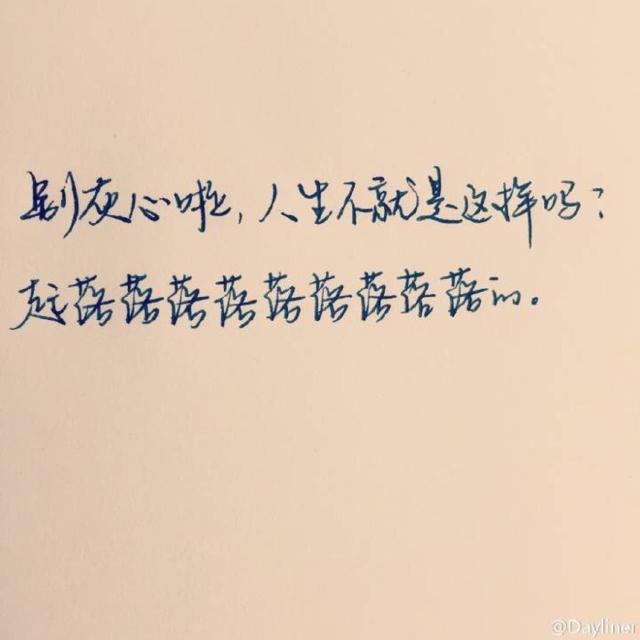 别灰心啦,人生不就是这样吗?
起落落落落落落落落落的。
@Dayliner